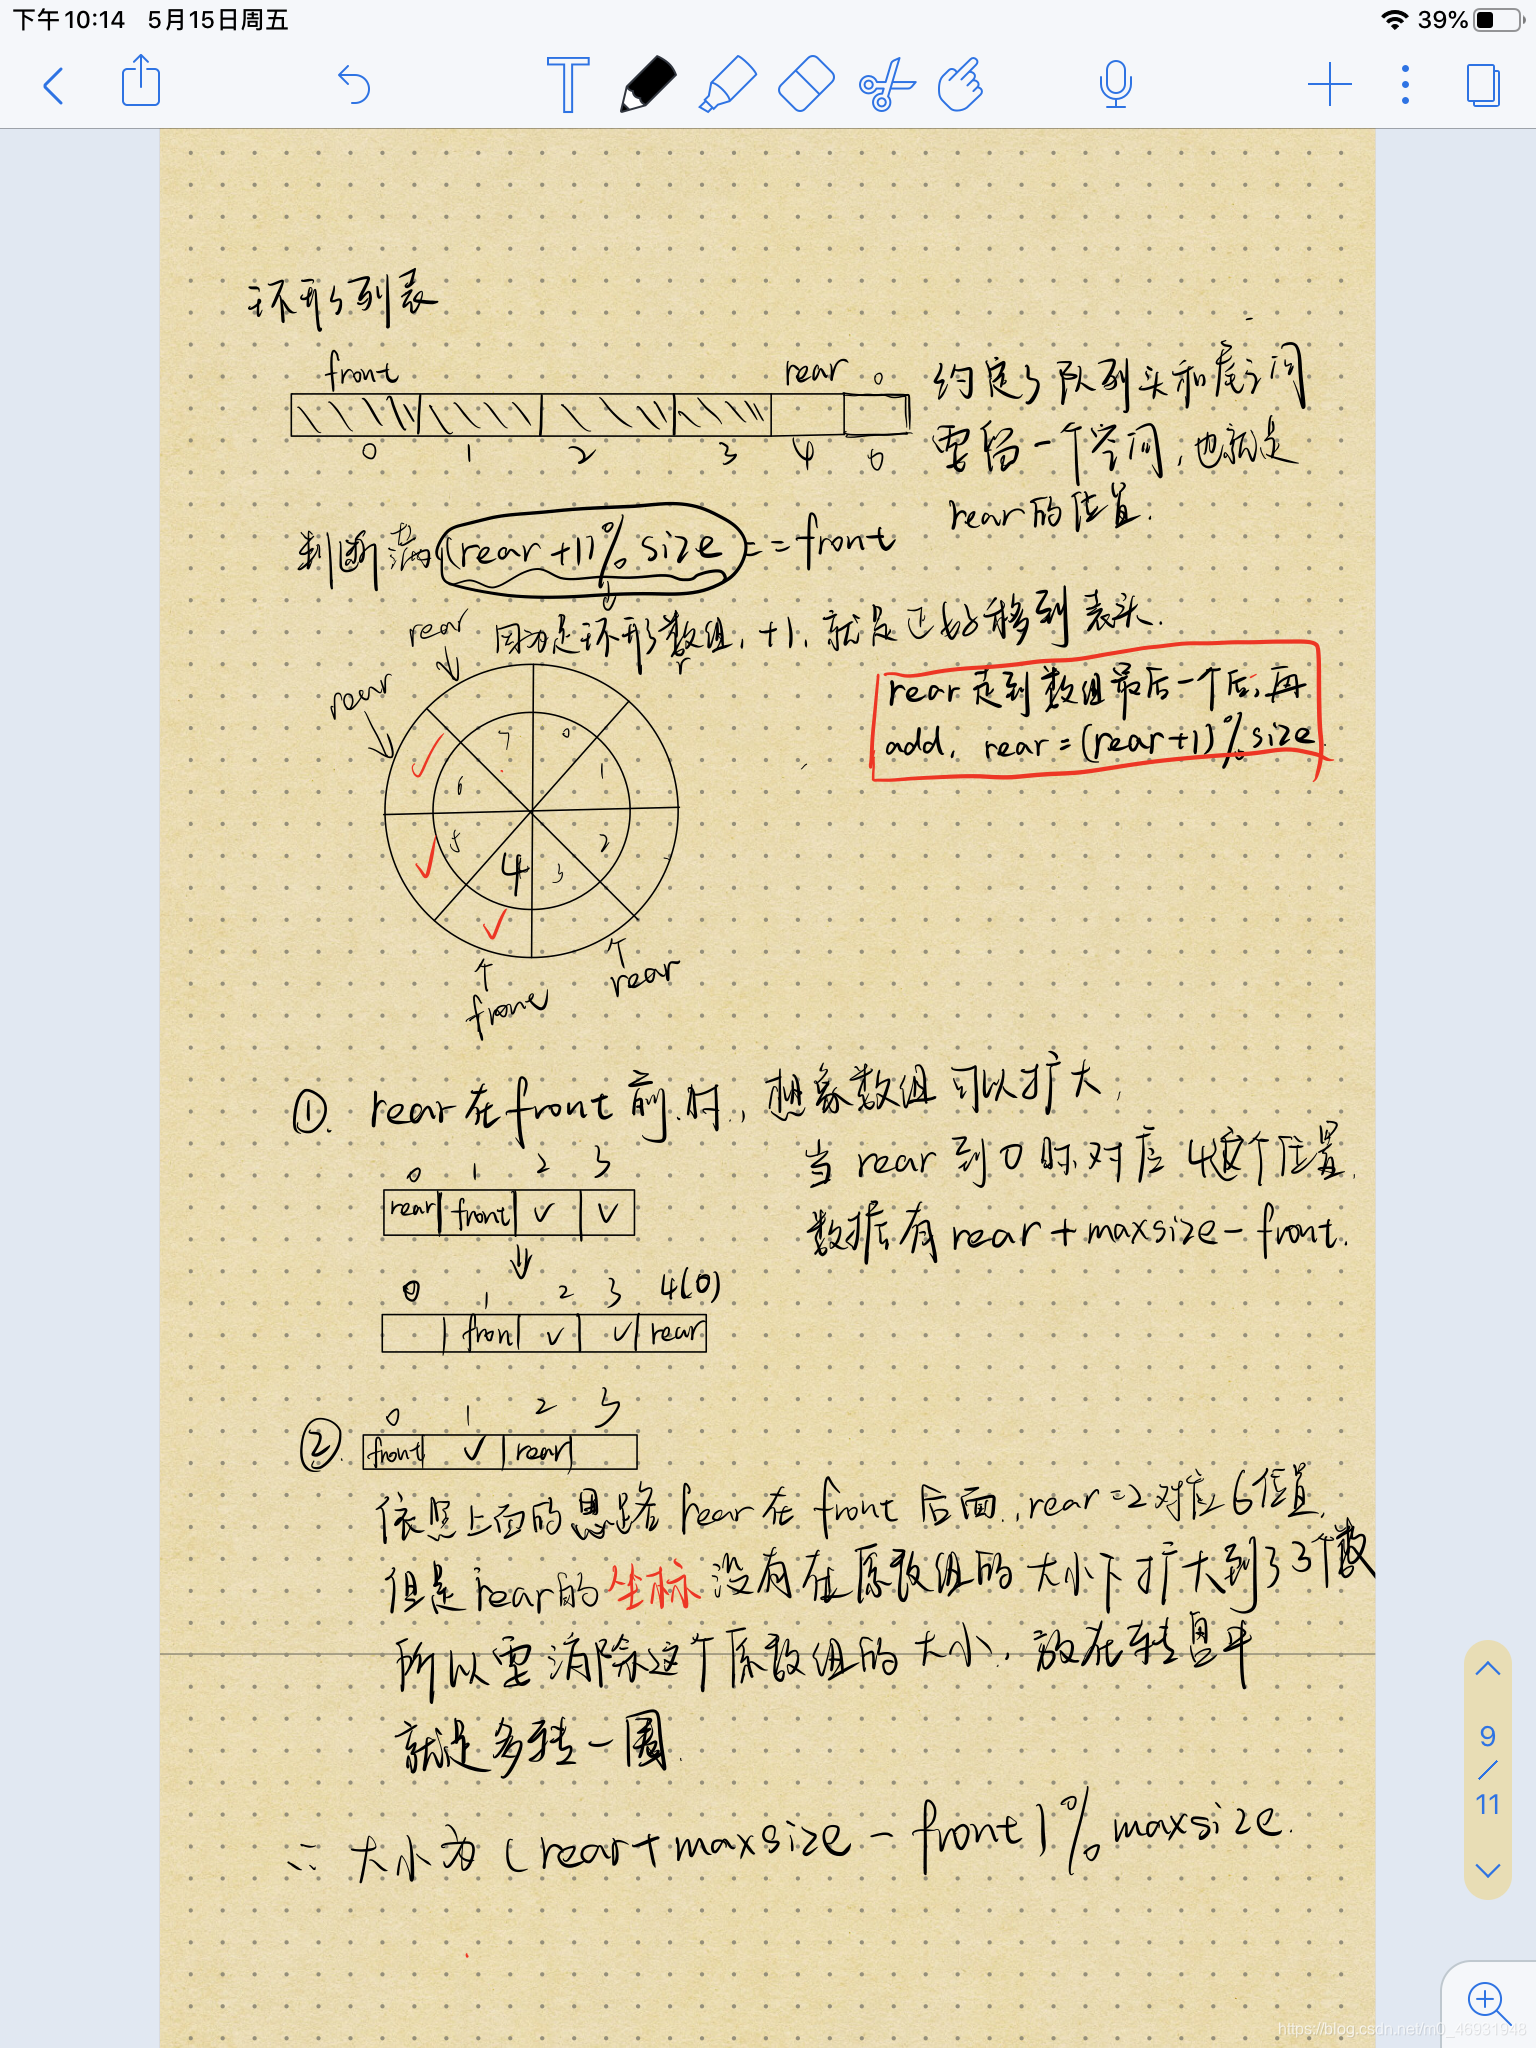 下午10:14 5月15日周五
39%
环形列表
front rear 0
0 1 2 3 4 0
约定了队列头和尾之间
要留一个空间，也就是
rear的位置.
判断为满 (rear+1)%size ==front
因为是环形数组，+1，就是正好移到表头.
r
rear
rear
rear走到数组最后一个后，再
add, rear=(rear+1)%size
7 0
6 1
5 2
4 3
front
rear
①. rear在front前时，想象数组可以扩大，
当rear到0时对应4这个位置.
数据有rear+maxsize-front.
0 1 2 3
rear front ✓ ✓
0 1 2 3 4(0)
fron ✓ ✓ rear
0 1 2 3
②. front ✓ rear
依照上面的思路 rear在front后面，rear=2对应6位置.
但是rear的坐标没有在原数组的大小下扩大到了3个数
所以要消除这个原数组的大小，放在转盘中
就是多转一圈.
∴大小为(rear+maxsize-front)%maxsize.
9
/
11
https://blog.csdn.net/m0_46931948